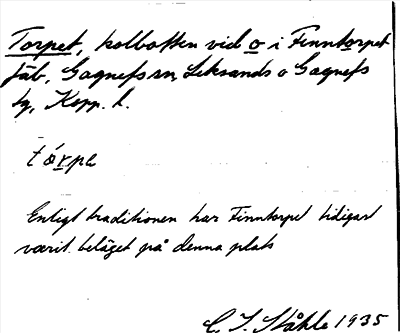 Torpet, kolbotten vid o i Finntorpet
fäb, Gagnefs sn, Leksands o Gagnefs
tg, Kopp. l.
tórpe
Enligt traditionen har Finntorpet tidigast
varit beläget på denna plats
C. I. Ståhle 1935